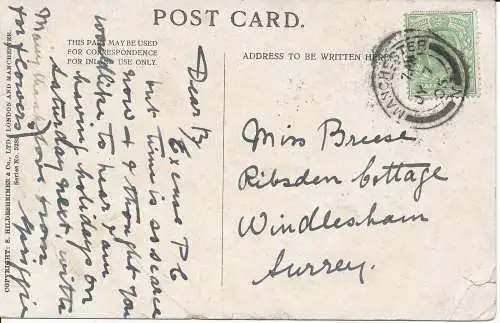 POST CARD.
THIS PART MAY BE USED
FOR CORRESPONDENCE
FOR INLAND USE ONLY.
ADDRESS TO BE WRITTEN HERE
MANCHESTER
Dear B
Excuse P.C
but time is so scarce
now & I thought you
would like to hear I am
having holidays on
Saturday next, with
love from
Many thanks
for flowers
Miss Breese
Ribsden Cottage
Windlesham
Surrey.
COPYRIGHT: S. HILDESHEIMER & Co., LTD., LONDON AND MANCHESTER.
Series No.